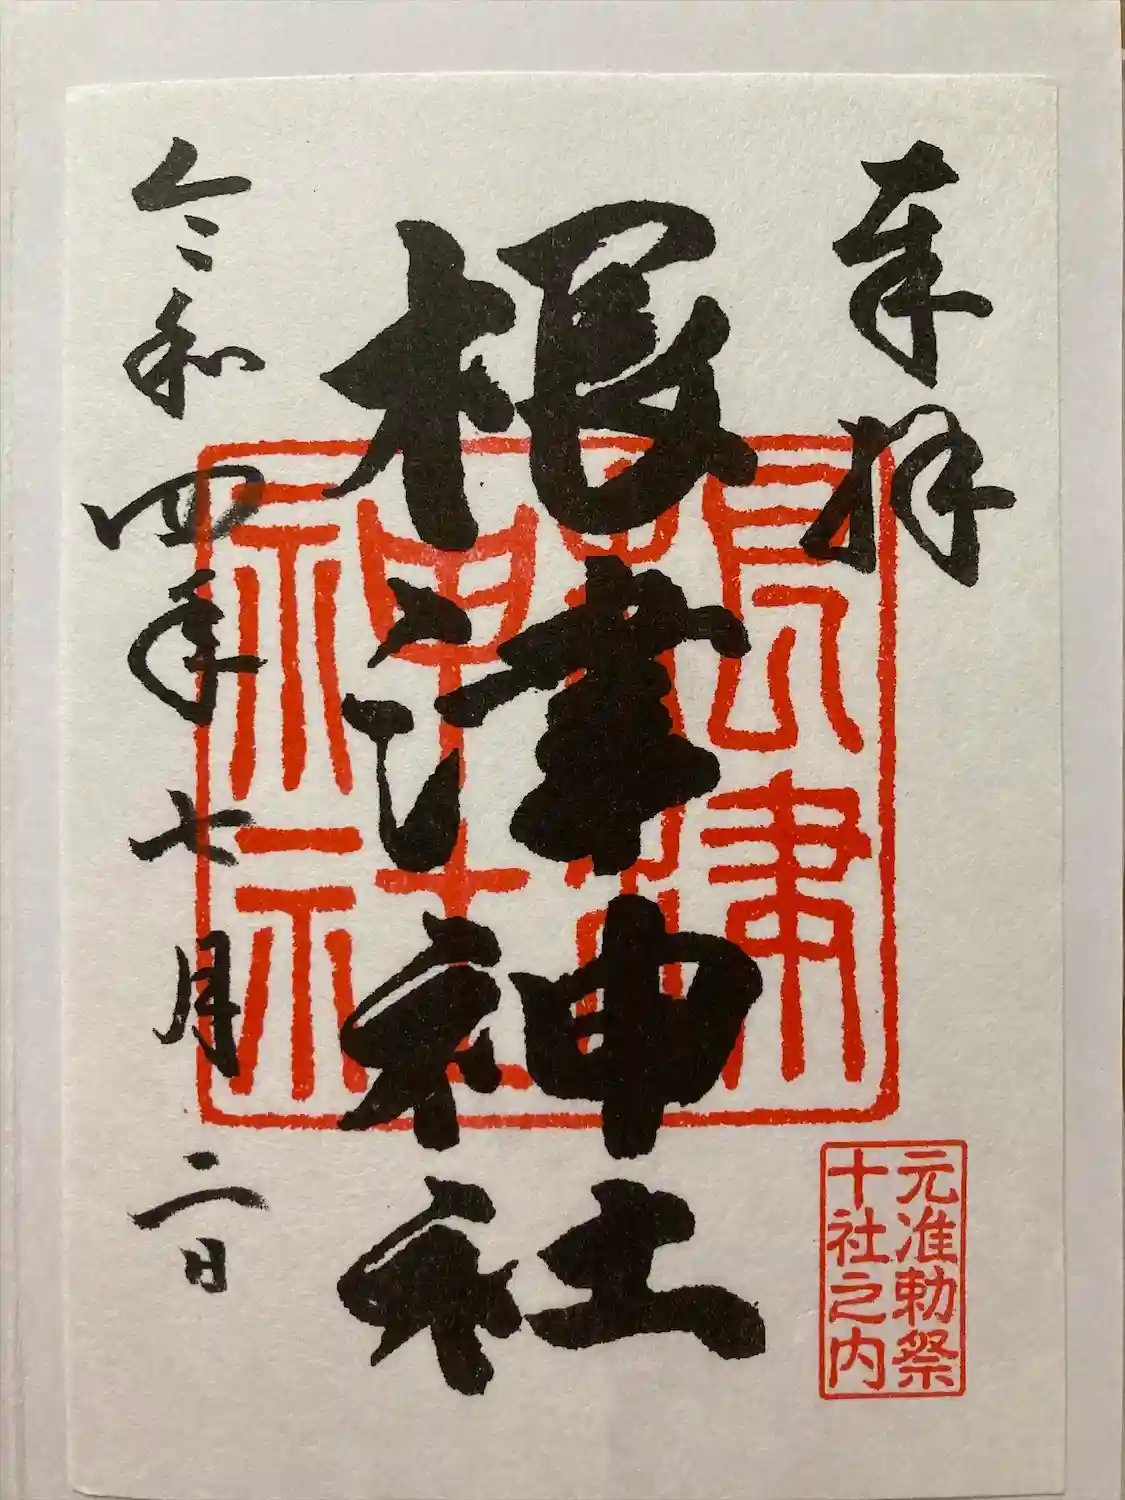 奉拝
根津神社
根津神社
元准勅祭
十社之内
令和四年七月二日